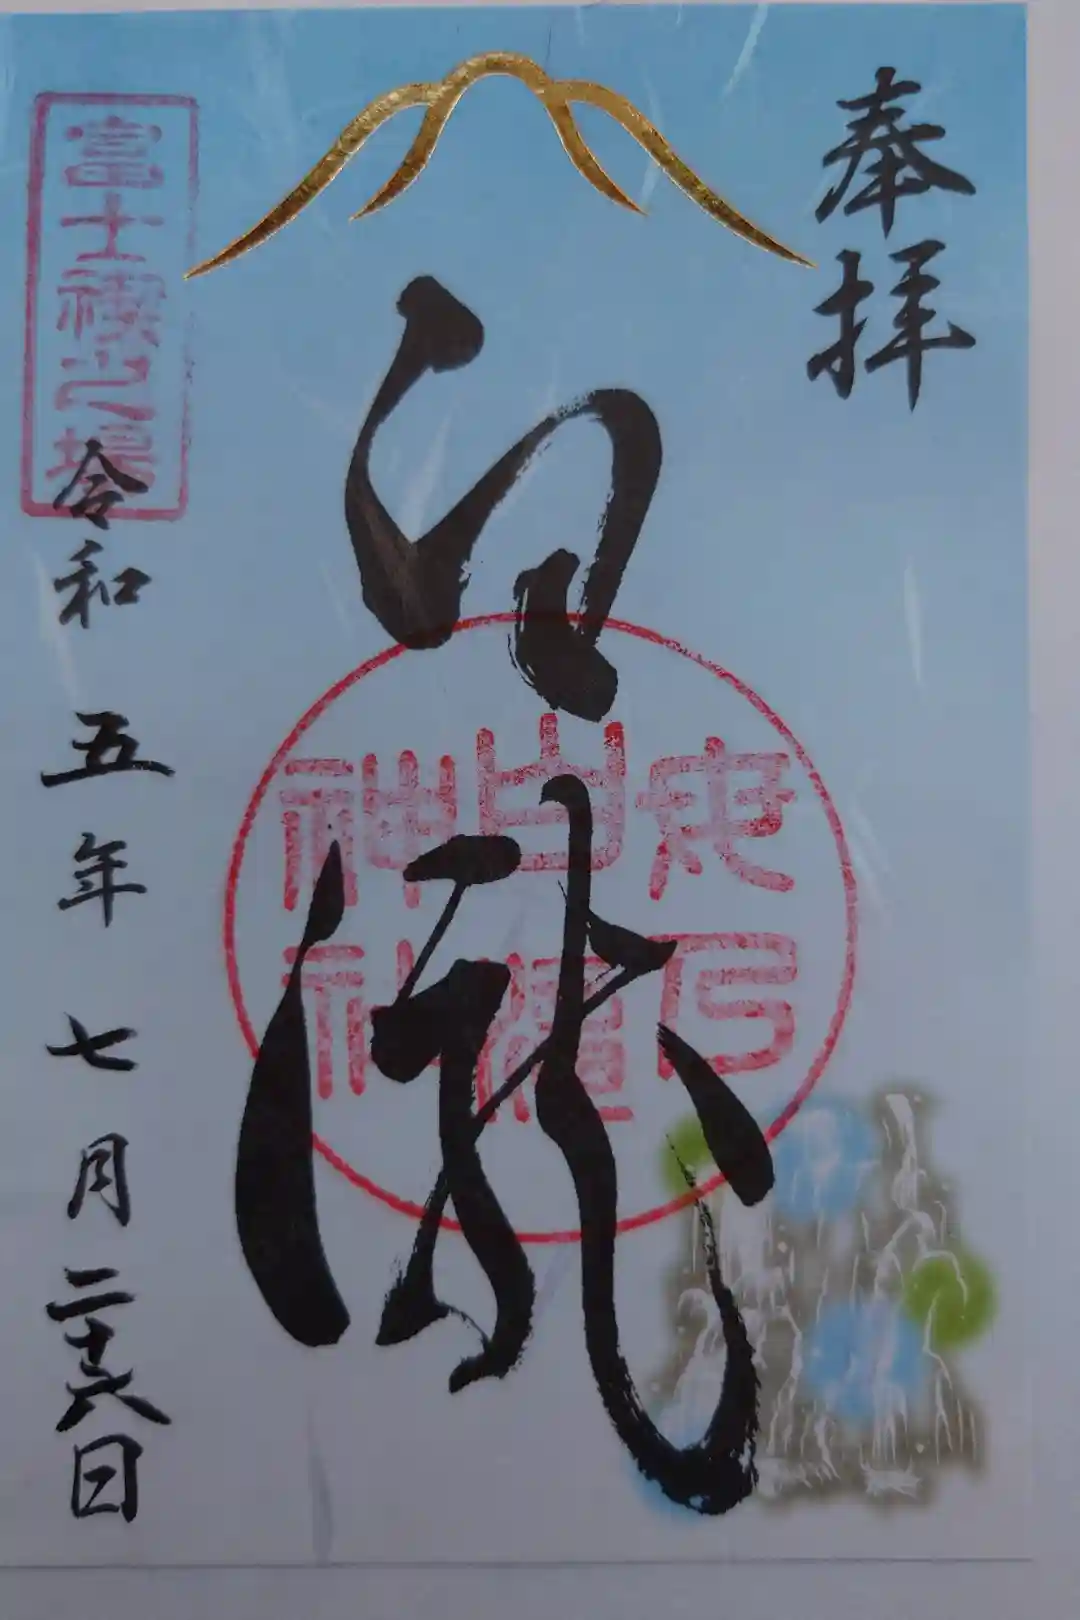 奉拝
白瀧
母乃
白瀧
神社
富士禊之場
令和五年七月二十六日